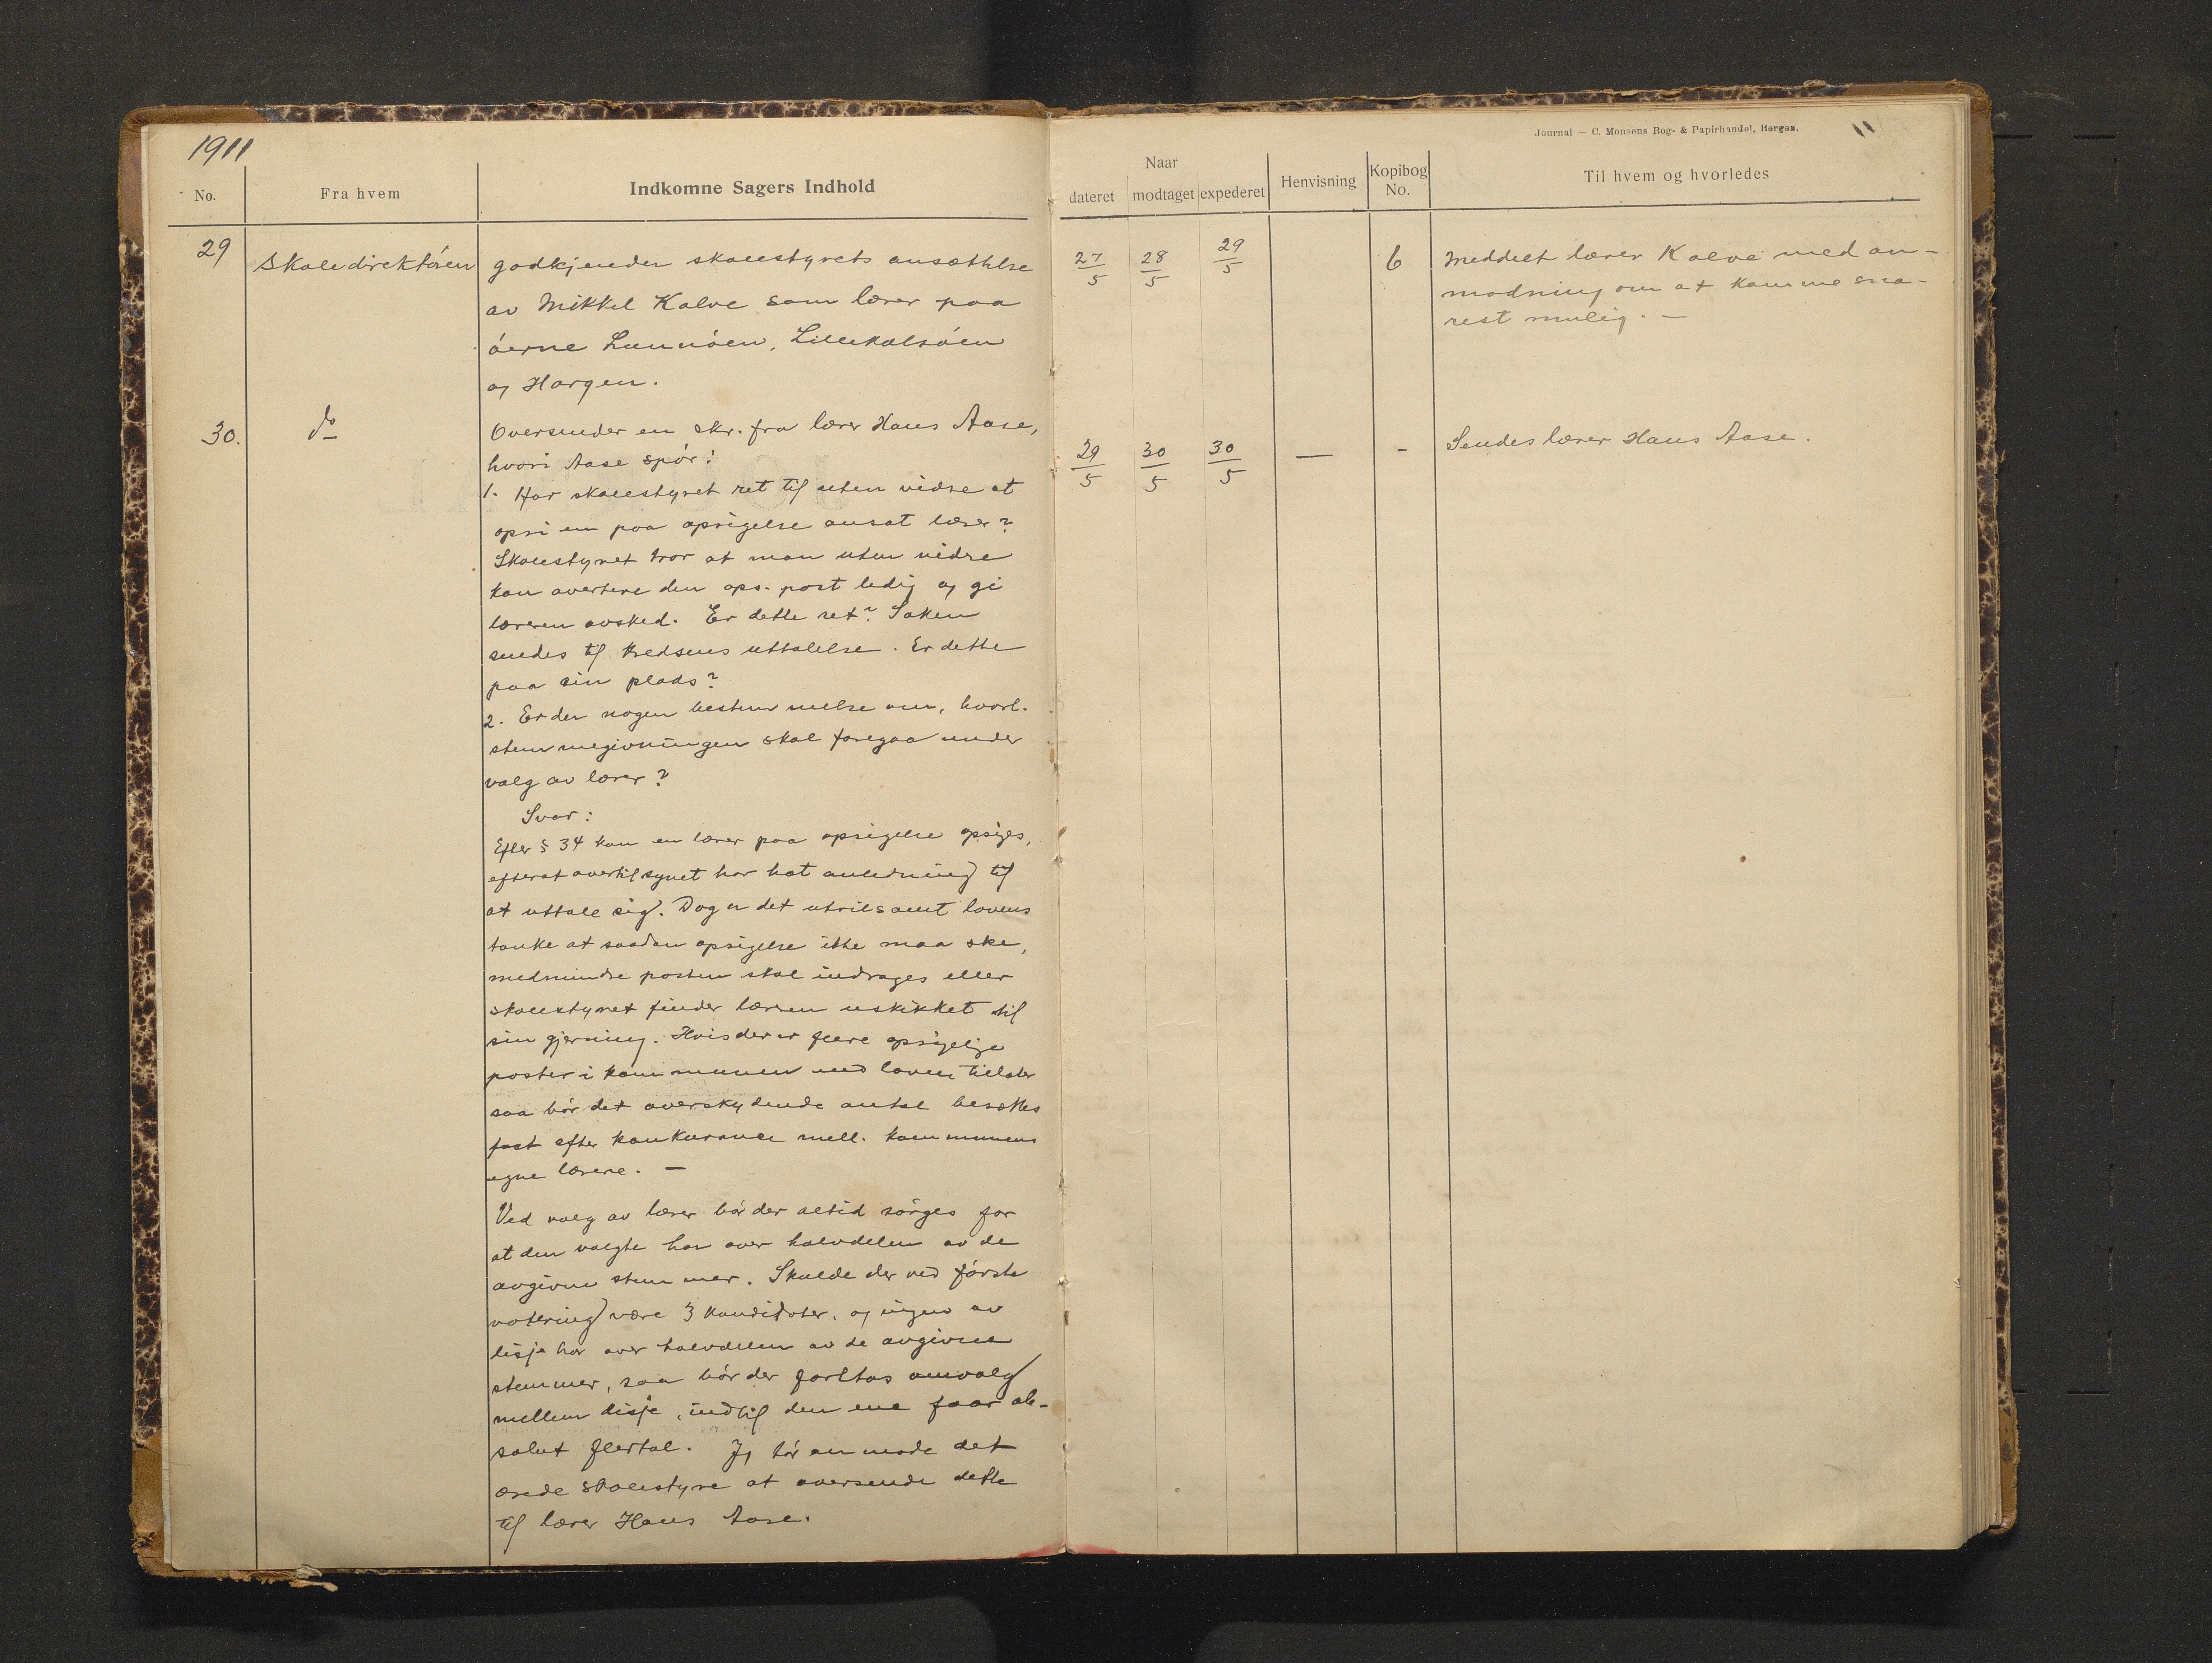 1911
No.
Fra hvem
Indkomne Sagers Indhold
29
Skoledirektören
godkjender skolestyrets ansættelse
av Mikkel Kalve som lærer paa
öerne Lunnöen, Lillekalsöen
og Hargen.
30.
do
Oversender en skr. fra lærer Hans Aase,
hvori Aase spör:
1. Har skolestyret ret til uten vidre at
opsi en paa opsigelse ansat lærer?
Skolestyret tror at man uten vidre
kan avertere den ops. post ledig og gi
læreren avsked. Er dette ret? Saken
sendes til kredsens uttalelse. Er dette
paa sin plads?
2. Er der nogen bestemmelse om, hvorl.
stemmegivningen skal foregaa under
valg av lærer?
Svar:
Efter § 34 kan en lærer paa opsigelse opsiges,
efterat overtilsynet har hat anledning til
at uttale sig. Dog er det utvilsomt lovens
tanke at saadan opsigelse ikke maa ske,
medmindre posten skal inddrages eller
skolestyret finder læreren uskikket til
sin gjerning. Hvis der er flere opsigelige
poster i kommunen end loven tillater
saa bör det overskydende antal besættes
fast efter konkurance mell. kommunens
egne lærere. —
Ved valg av lærer bör der altid sörges for
at den valgte har over halvdelen av de
avgivne stemmer. Skulde der ved förste
votering være 3 kandidater, og ingen av
disje har over halvdelen av de avgivne
stemmer, saa bör der foretas omvalg
mellem disje, indtil den ene faar ab-
solut flertal. Jeg tör anmode det
ærede skolestyre at oversende dette
til lærer Hans Aase.
Journal — C. Monsens Bog- & Papirhandel, Bergen.
11
Naar
dateret
modtaget
expederet
Henvisning
Kopibog
No.
Til hvem og hvorledes
27/5 28/5 29/5
6
Meddelt lærer Kalve med an-
modning om at komme sna-
rest mulig. —
29/5 30/5 30/5 — -
Sendes lærer Hans Aase.